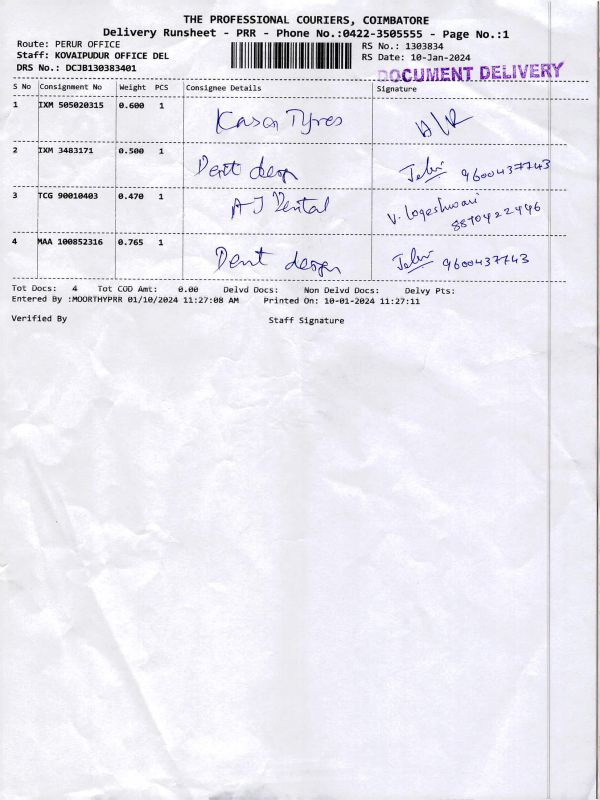 THE PROFESSIONAL COURIERS, COIMBATORE
Delivery Runsheet - PRR - Phone No.:0422-3505555 - Page No.:1
Route: PERUR OFFICE
Staff: KOVAIPUDUR OFFICE DEL
DRS No.: DCJB130383401
RS No.: 1303834
RS Date: 10-Jan-2024
DOCUMENT DELIVERY
S No Consignment No Weight PCS Consignee Details Signature
1 IXM 505020315 0.600 1 Kason Tyres
2 IXM 3483171 0.500 1 Dent design 9600437743
3 TCG 90010403 0.470 1 AJ Dental V. Logeshwari 8870422446
4 MAA 100852316 0.765 1 Dent design 9600437743
Tot Docs: 4 Tot COD Amt: 0.00 Delvd Docs: Non Delvd Docs: Delvy Pts:
Entered By :MOORTHYPRR 01/10/2024 11:27:08 AM Printed On: 10-01-2024 11:27:11
Verified By Staff Signature